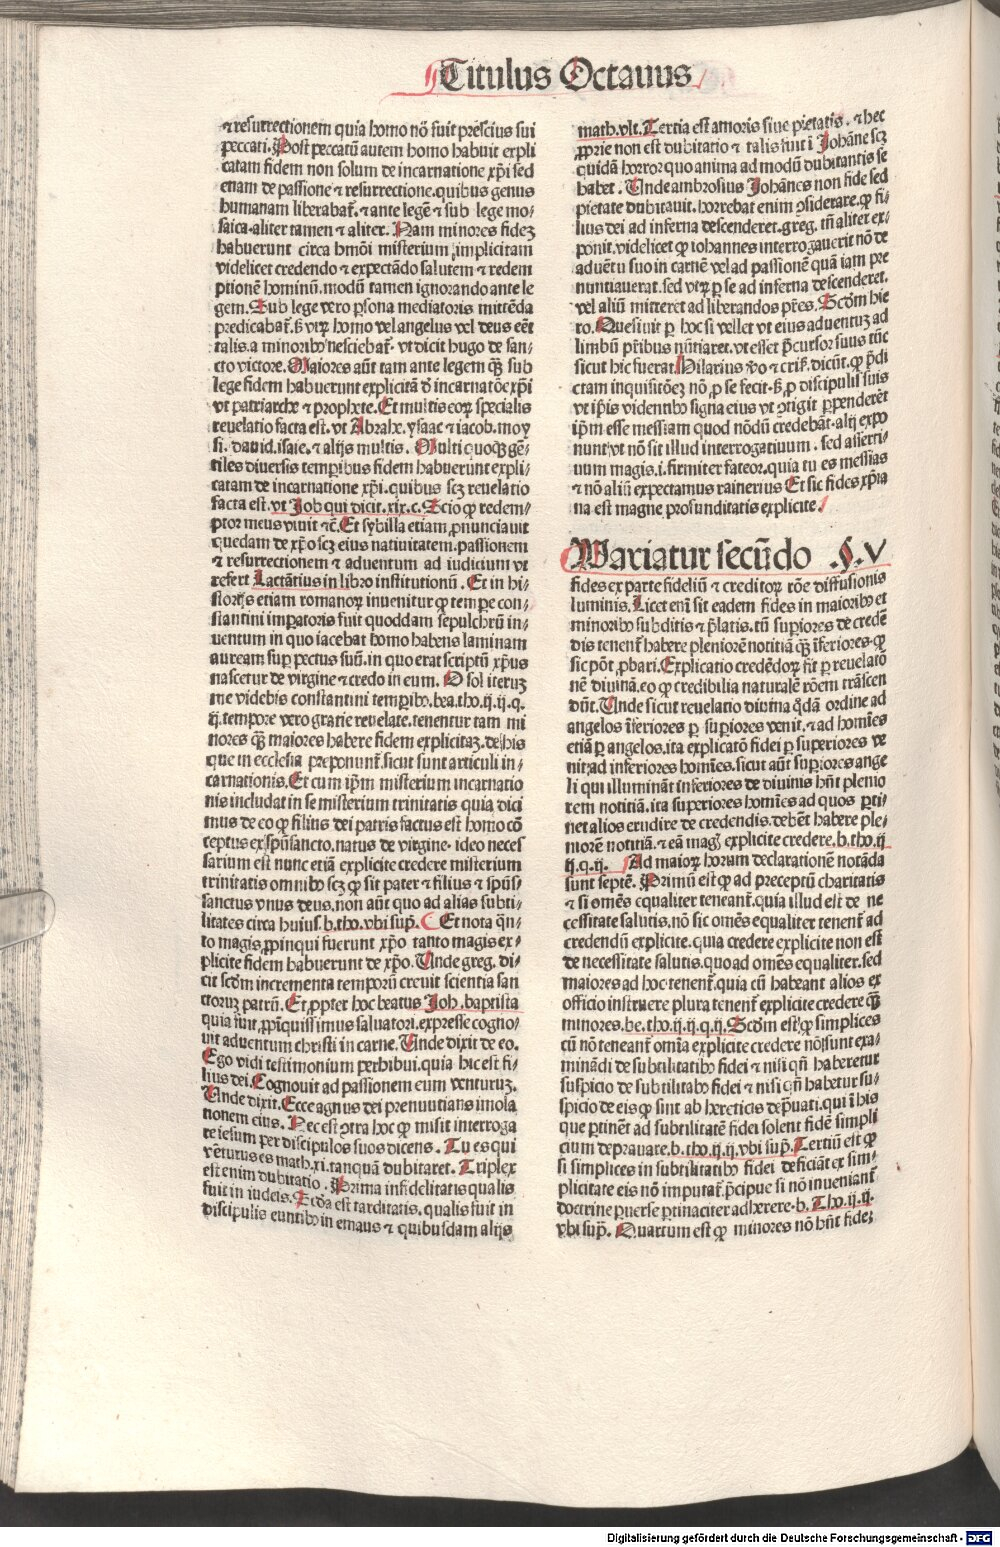 Titulus Octauus
⁊ resurrectionem quia homo nō fuit prescius sui
peccati. Post peccatū autem homo habuit expli
catam fidem non solum de incarnatione xp̄i sed
etiam de passione ⁊ resurrectione. quibus genus
humanam liberabat̄. ⁊ ante legē ⁊ sub lege mo/
saica aliter tamen ⁊ aliter. Nam minores fidez
habuerunt circa hmōi misterium implicitam
videlicet credendo ⁊ expectādo salutem ⁊ redem
ptionē hominū. modū tamen ignorando ante le
gem. Sub lege vero ꝑsona mediatoris mittēda
predicabat̄. ẜ vtꝝ homo vel angelus vel deus eēt
talis. a minoribꝰ nesciebat̄. vt dicit hugo de san/
cto victore. Maiores aūt tam ante legem qꝫ sub
lege fidem habuerunt explicitā ð incarnatōe xp̄i
vt patriarche ⁊ prophete. Et multis eoꝝ specialis
reuelatio facta est. vt Abrahe. ysaac ⁊ iacob. moy
si. dauid. isaie. ⁊ alijs multis. Multi quoqꝫ gē/
tiles diuersis temꝑibus fidem habuerunt expli/
catam de incarnatione xp̄i. quibus scꝫ reuelatio
facta est. vt Job qui dicit. xix. c. Scio ꝙ redem/
ptor meus viuit ⁊c̄. Et sybilla etiam ꝓnunciauit
quedam de xp̄o scꝫ eius natiuitatem. passionem
⁊ resurrectionem ⁊ aduentum ad iudiciuꝫ vt
refert Lactātius in libro institutionū. Et in hi/
storijs etiam romanoꝝ inuenitur ꝙ temꝑe con/
stantini imꝑatoris fuit quoddam sepulchrū in/
uentum in quo iacebat homo habens laminam
auream suꝑ pectus suū. in quo erat scriptū xp̄us
nascetur de virgine ⁊ credo in eum. O sol iteruꝫ
me videbis constantini temꝑibꝰ. bea. tho. ij. ij. q.
ij. tempore vero gratie reuelate. tenentur tam mi
nores qꝫ maiores habere fidem explicitaꝫ. de his
que in ecclesia preponunt̄. sicut sunt articuli in/
carnationis. Et cum ip̄m misterium incarnatio
nis includat in se misterium trinitatis quia dici
mus de eo ꝙ filius dei patris factus est homo cō
ceptus ex sp̄usancto. natus de virgine. ideo neces
sarium est nunc etiā explicite credere misterium
trinitatis omnibꝰ scꝫ ꝙ sit pater ⁊ filius ⁊ sp̄us/
sanctus vnus deus. non aūt quo ad alias subti/
litates circa huius. b. tho. vbi suꝑ. Et nota q̄n/
to magis ꝓpinqui fuerunt xp̄o tanto magis ex/
plicite fidem habuerunt de xp̄o. Unde greg. di/
cit scdm incrementa temporū creuit scientia san
ctoruꝫ patrū. Et ꝓpter hoc beatus Joh. baptista
quia fuit ꝓpīquissimus saluatori. expresse cogno/
uit aduentum christi in carne. Unde dixit de eo.
Ego vidi testimonium perhibui. quia hic est fi/
lius dei. Cognouit ad passionem eum venturuꝫ.
Unde dixit. Ecce agnus dei prenuntians imola
tionem eius. Nec est ꝯtra hoc ꝙ misit interroga
re iesum per discipulos suos dicens. Tu es qui
vēturus es math. xi. tanquā dubitaret. Triplex
est enim dubitatio. Prima infidelitatis qualis
fuit in iudeis. Scda est tarditatis. qualis fuit in
discipulis euntibꝰ in emaus ⁊ quibusdam alijs
math. vlt. Tertia est amoris siue pietatis. ⁊ hec
ꝓprie non est dubitatio ⁊ talis fuit ī Johāne scꝫ
quidā horror quo anima ad modū dubitantis se
habet. Unde ambrosius Johānes non fide sed
pietate dubitauit. horrebat enim ꝯsiderare. ꝙ fi/
lius dei ad inferna descenderet. greg. tn̄ aliter ex/
ponit. videlicet ꝙ iohannes interrogauerit nō de
aduētu suo in carnē vel ad passionē quā iam pre
nuntiauerat. sed vtꝝ ꝑ se ad inferna descenderet.
vel aliū mitteret ad liberandos pr̄es. Scdm hie
ro. Quesiuit ꝑ hoc si vellet vt eius aduentuꝫ ad
limbū pr̄ibus nūtiaret. vt esset p̄cursor suus tūc
sicut hic fuerat. Hilarius v̄o ⁊ cris. dicūt. ꝙ p̄di
ctam inquisitōeꝫ nō ꝑ se fecit. ẜ ꝑ discipulis suis
vt ip̄is videntibꝰ signa eius vt ꝯtigit ꝑpenderēt
ip̄m esse messiam quod nōdū credebāt. alij expo
nunt vt nō sit illud interrogatiuum. sed asserti/
uum magis. i. firmiter fateor. quia tu es messias
⁊ nō aliū expectamus rainerius Et sic fides xp̄ia
na est magne profunditatis explicite.
Mariatur secūdo .§. V
fides ex parte fideliū ⁊ creditoꝝ rōe diffusionis
luminis. Licet eni sit eadem fides in maioribꝰ et
minoribꝰ subditis ⁊ p̄latis. tn̄ suꝑiores de credē
dis tenent̄ habere pleniorē notitiā qꝫ īferiores. ꝙ
sic pōt ꝓbari. Explicatio credēdoꝝ fit ꝑ reuelatō
nē diuinā. eo ꝙ credibilia naturalē rōem trāscen
dūt. Unde sicut reuelatio diuina q̄dā ordine ad
angelos īferiores ꝑ suꝑiores venit. ⁊ ad homīes
etiā ꝑ angelos. ita explicatō fidei ꝑ superiores ve
nit ad inferiores homīes. sicut aūt suꝑiores ange
li qui illumināt inferiores de diuinis hn̄t plenio
rem notitiā. ita superiores homīes ad quos ꝑti/
net alios erudire de credendis. debēt habere ple/
niorē notitiā. ⁊ eā magꝭ explicite credere. b. tho. ij
ij. q. ij. Ad maioꝝ horum declarationē notāda
sunt septē. Primū est ꝙ ad preceptū charitatis
⁊ si omēs equaliter teneant̄. quia illud est de ne
cessitate salutis. nō sic omēs equaliter tenent̄ ad
credendū explicite. quia credere explicite non est
de necessitate salutis. quo ad omēs equaliter. sed
maiores ad hoc tenent̄. quia cū habeant alios ex
officio instruere plura tenent̄ explicite credere qꝫ
minores. be. tho. ij. ij. q. ij. Scdm est ꝙ simplices
cū nō teneant̄ omīa explicite credere nō sunt exa/
minādi de subtilitatibꝰ fidei ⁊ nisi qn̄ haberetur
suspicio de subtilitabꝰ fidei ⁊ nisi qn̄ habetur su/
spicio de eis ꝙ sint ab hereticis dep̄uati. qui ī his
que ꝑtinēt ad subtilitatē fidei solent fidē simpli
cium deprauare. b. tho. ij. ij. vbi suꝑ. Tertiū est ꝙ
si simplices in subtilitatibꝰ fidei deficiāt ex sim/
plicitate eis nō imputat̄. p̄cipue si nō inueniant̄
doctrine ꝑuerse ꝑtinaciter adherere. b. Tho. ij. ij.
vbi suꝑ. Quartum est ꝙ minores nō hn̄t fideꝫ
Digitalisierung gefördert durch die Deutsche Forschungsgemeinschaft - DFG